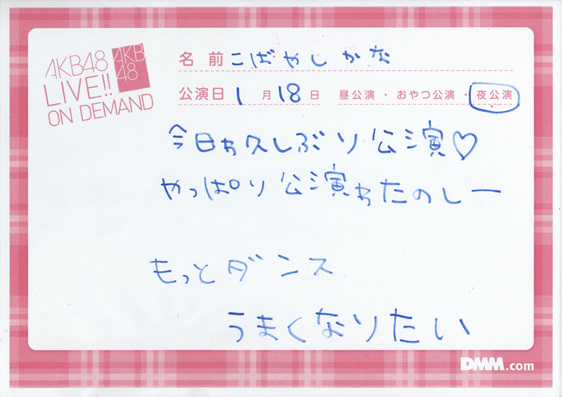 AKB48
LIVE!!
ON DEMAND
AKB
48
名 前 こばやしかな
公演日 1 月 18 日 昼公演・おやつ公演・夜公演
今日ゎ久しぶり公演♡
やっぱり公演ゎたのしー
もっとダンス
うまくなりたい
DMM.com